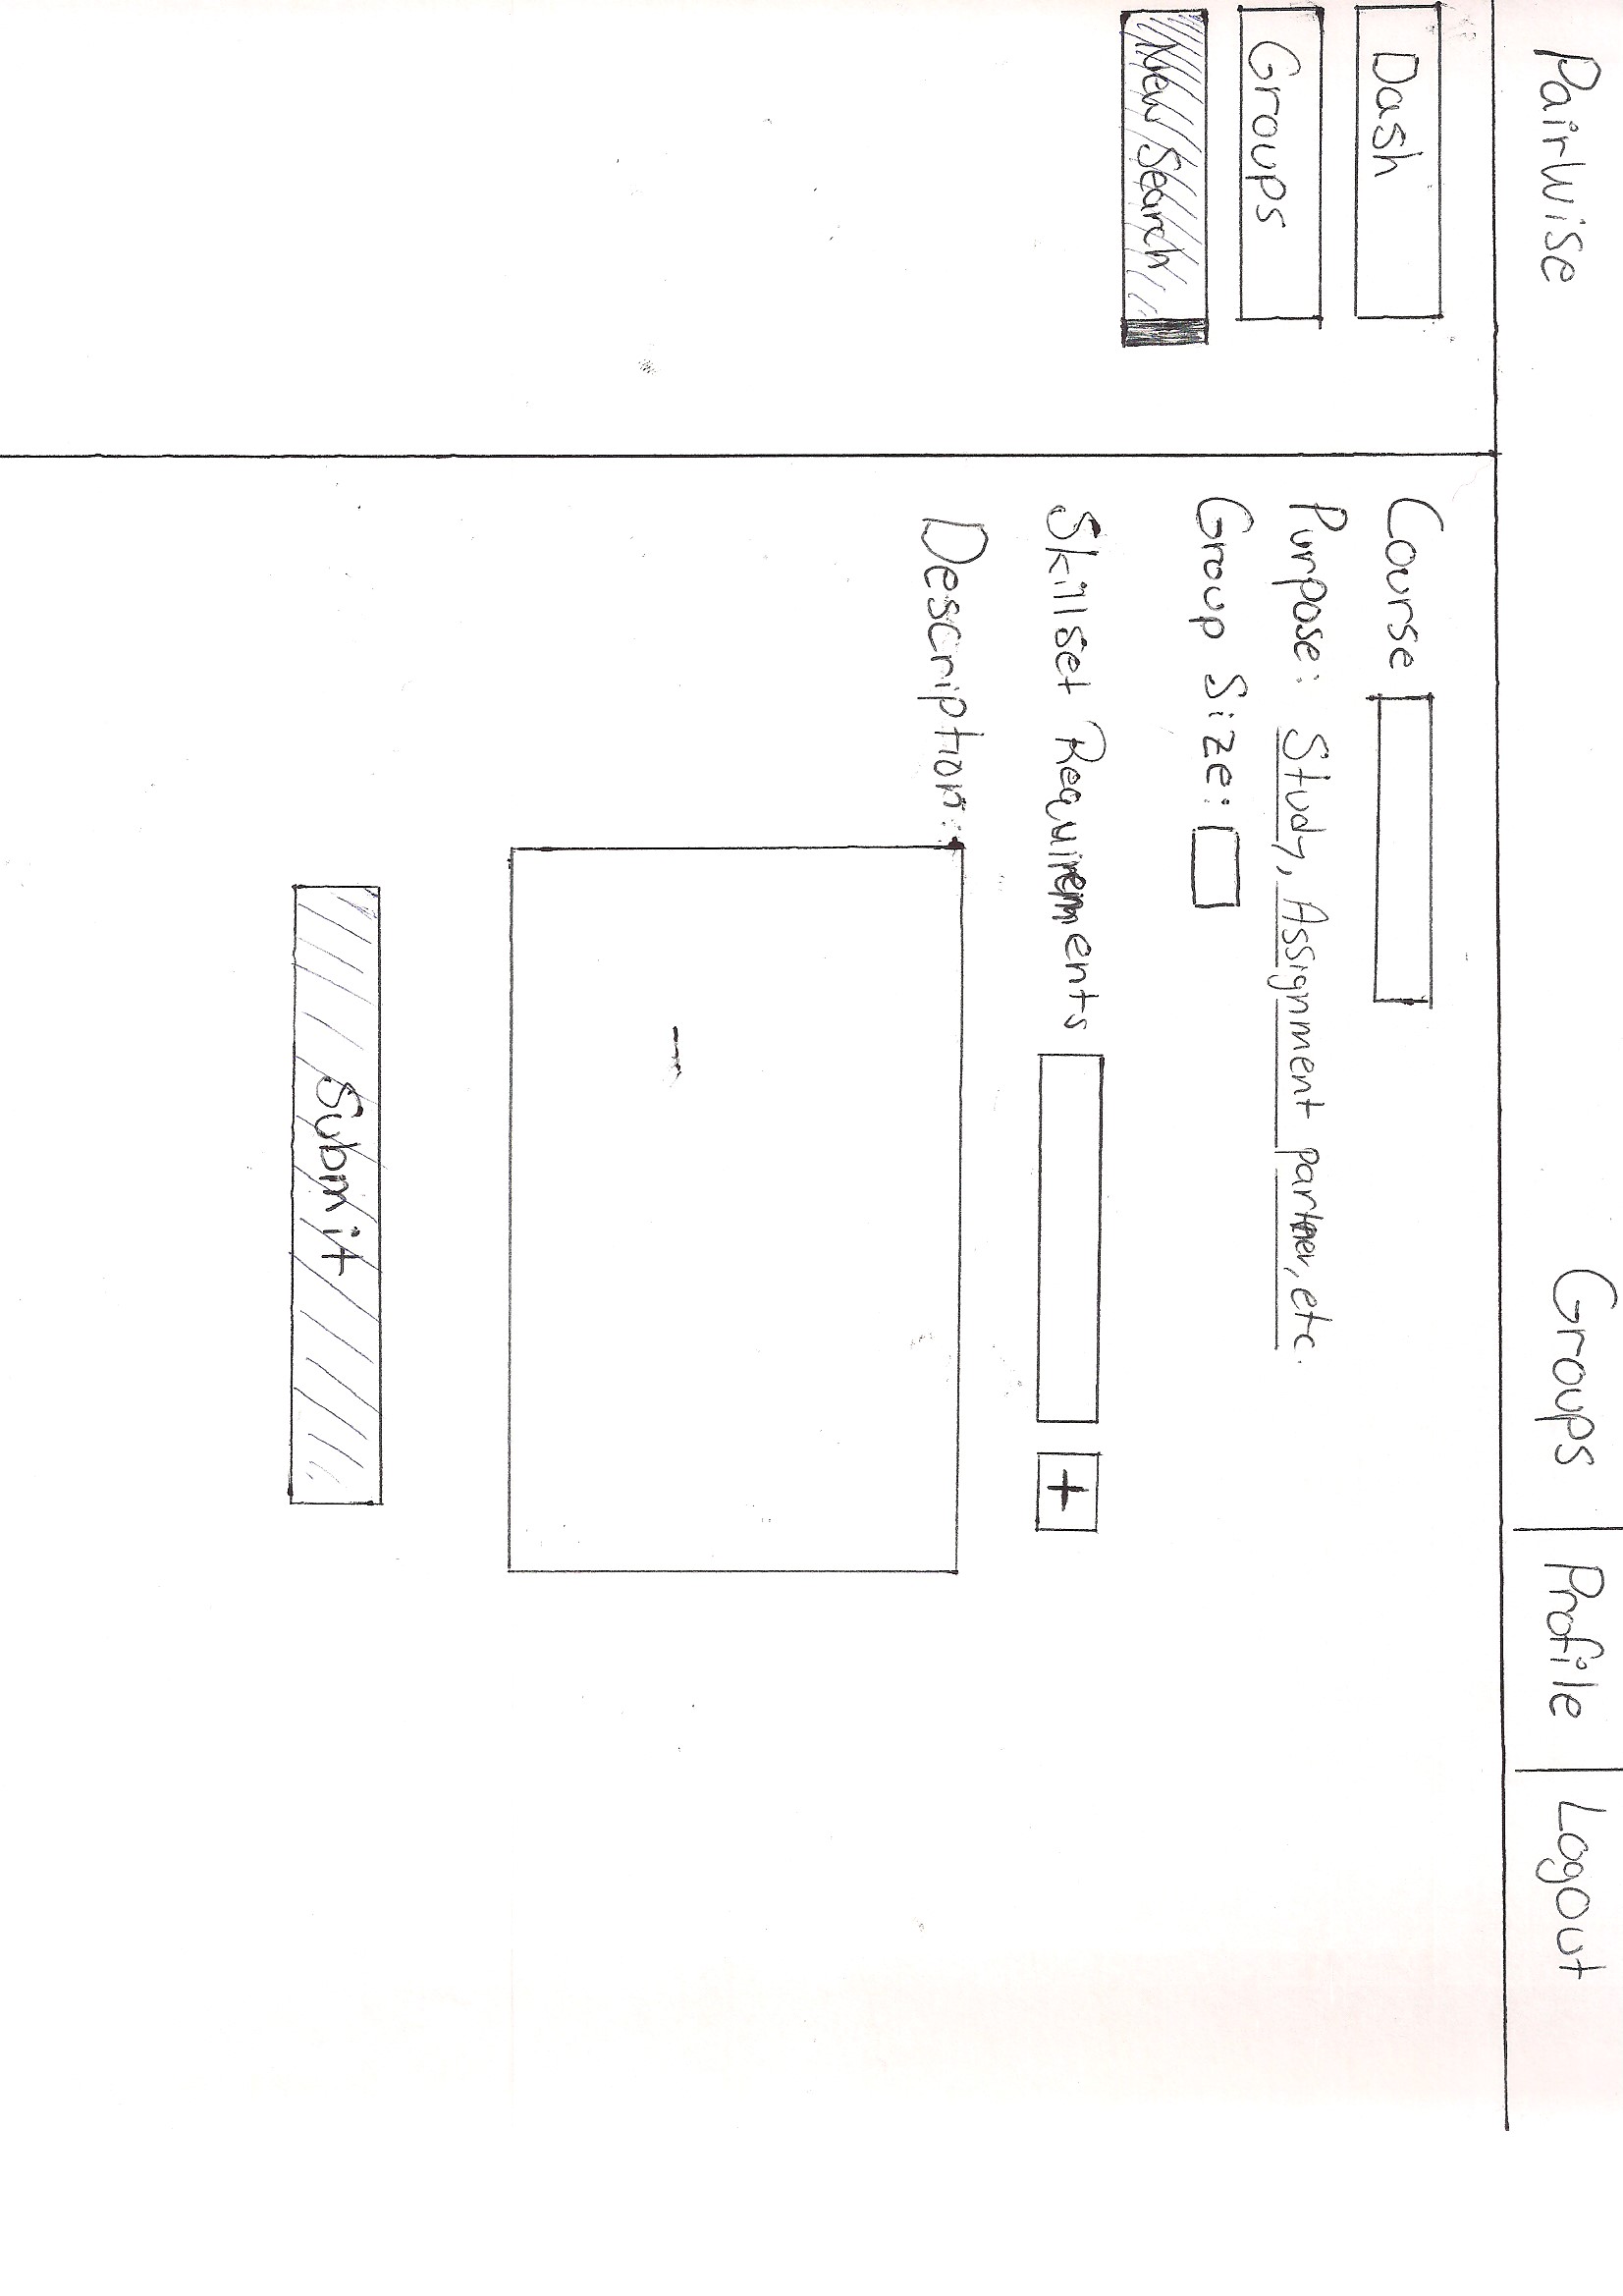 Pairwise
Groups
Profile
Logout
Dash
Groups
New Search
Course
Purpose: Study, Assignment partner, etc.
Group Size:
Skillset Requirements +
Description:
Submit